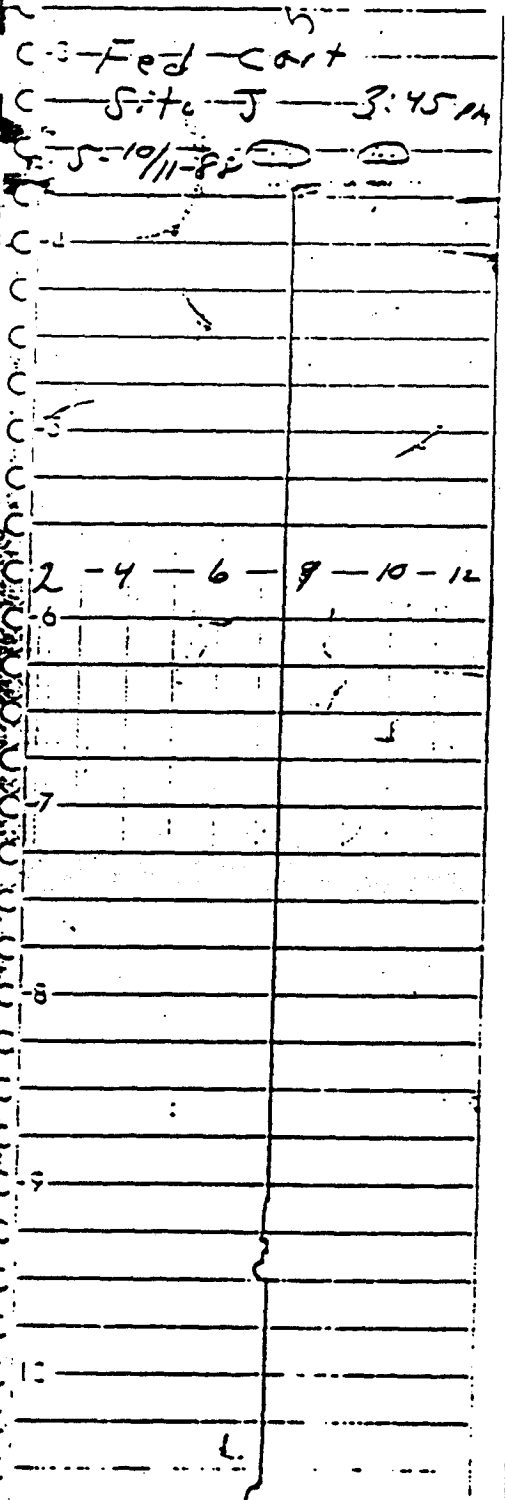 Fed Cart
Site J 3:45 PM
5-10/11-88
2 - 4 - 6 - 8 - 10 - 12
6
7
8
9